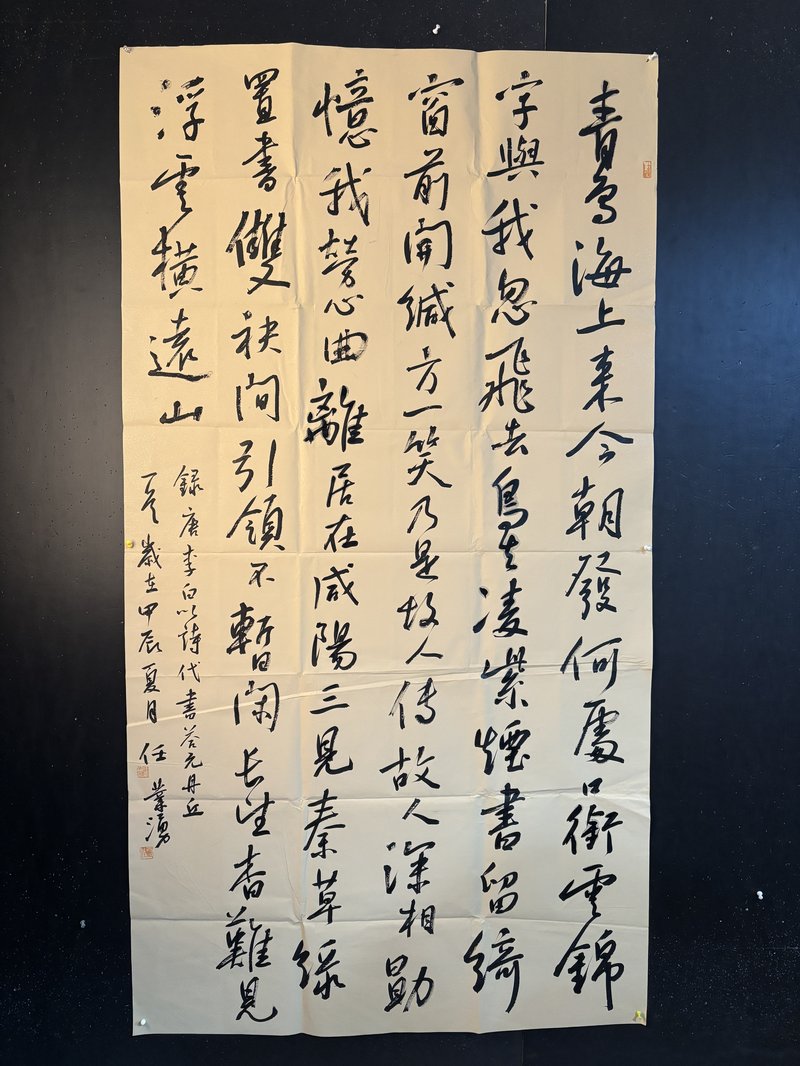 青鳥海上來今朝發何處口銜雲錦
字與我忽飛去鳥去凌紫煙書留綺
窗前開緘方一笑乃是故人傳故人深相勖
憶我勞心曲離居在咸陽三見秦草綠
置書雙袂間引領不暫閑長望杳難見
浮雲橫遠山
錄唐李白以詩代書答元丹丘
一首歲在甲辰夏月任業湧